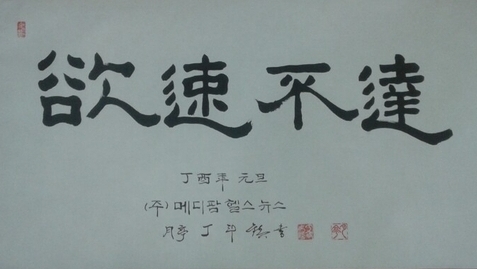 欲速不達
丁酉年 元旦
(주) 메디팜헬스뉴스
月亭 丁